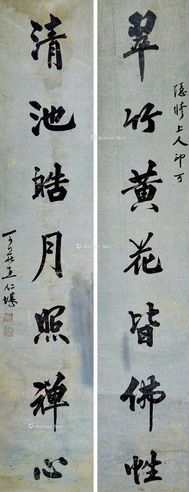 翠竹黃花皆佛性
隱修上人印可
清池皓月照禪心
王仁堪